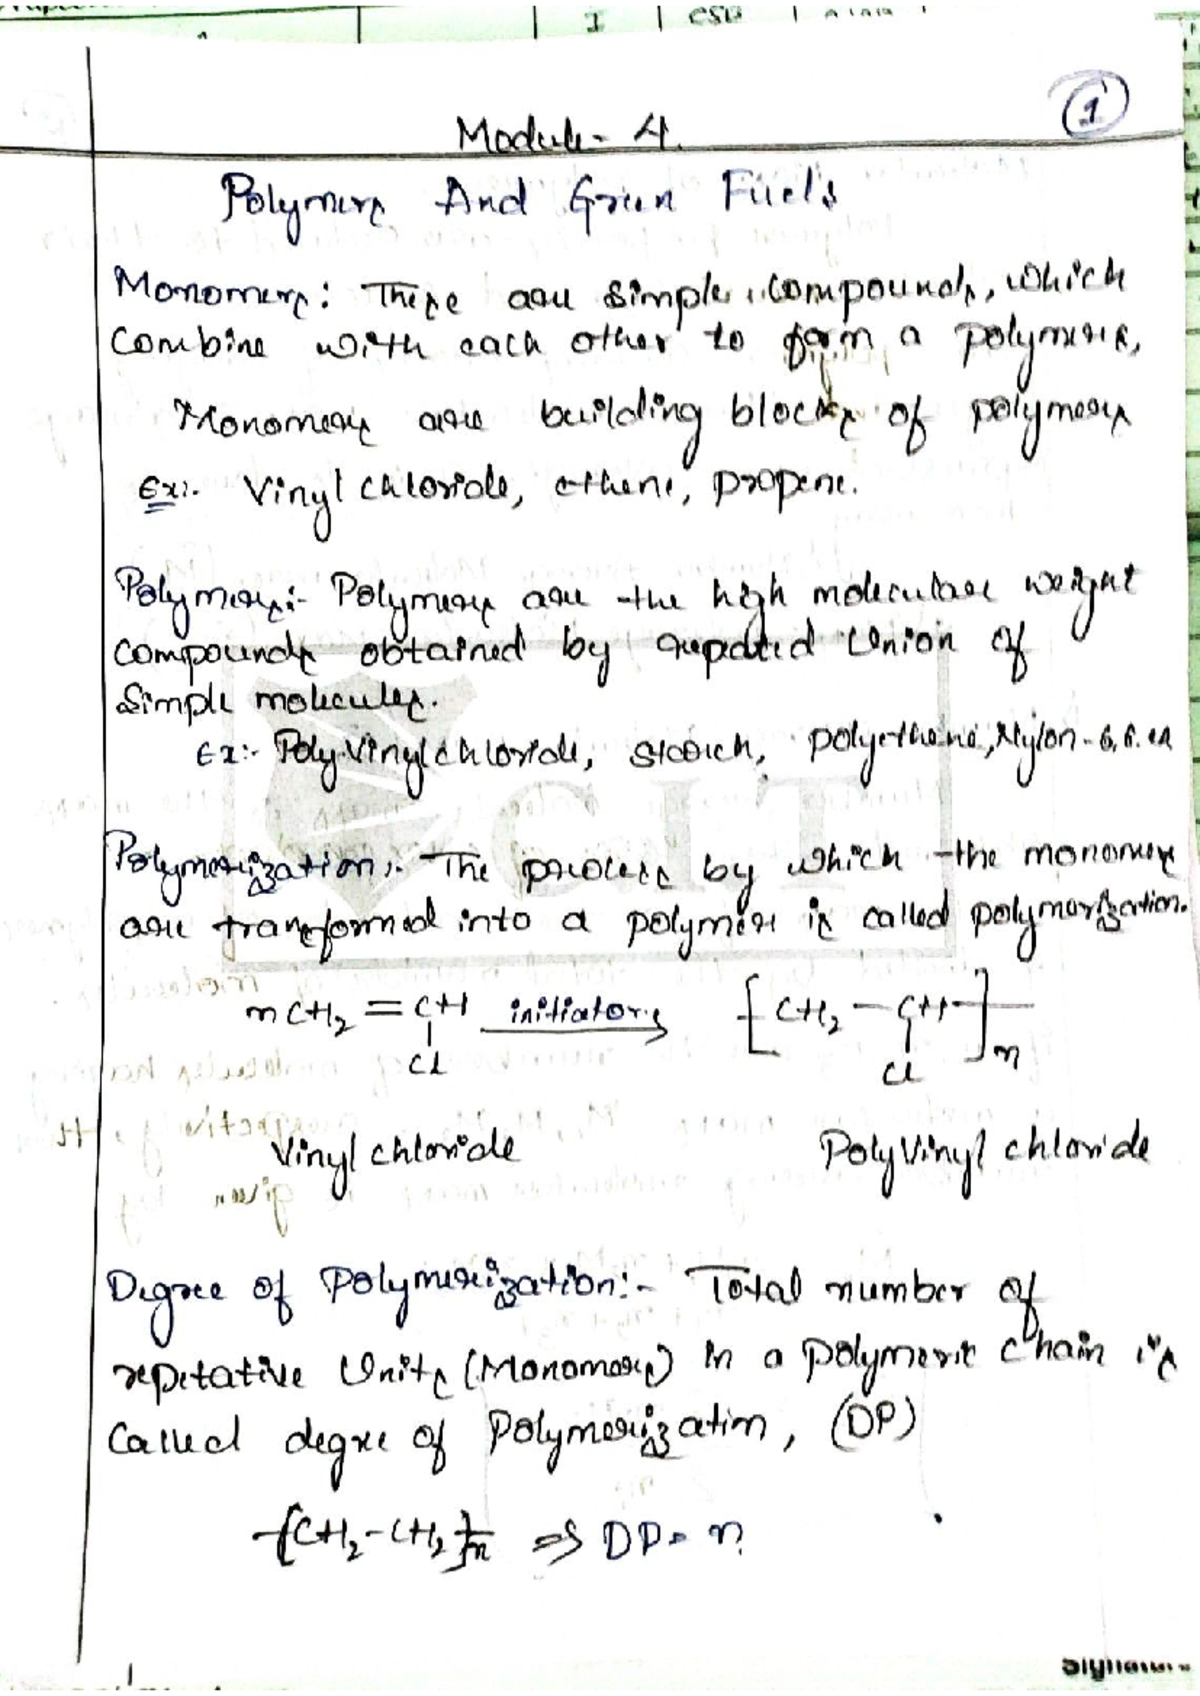 I CSD
1
Module - 4.
Polymers And Green Fuels
Monomers: These are simple compounds, which
combine with each other to form a polymers,
Monomers are building blocks of polymers
Ex:- Vinyl chloride, ethene, propene.
Polymers:- Polymers are the high molecular weight
compounds obtained by repeated Union of
Simple molecules.
Ex:- Poly.Vinylchloride, starch, polyethene, Nylon-6,6.
CIT
Polymerization:- The process by which the monomers
are transformed into a polymer is called polymerization.
nCH₂ = CH initiators → [CH₂ - CH]n
Cl Cl
Vinyl chloride PolyVinyl chloride
Degree of Polymerization:- Total number of
repetative Units (Monomers) in a polymeric chain is
Called degree of Polymerization, (DP)
-[CH₂-CH₂]n ⇒ DP = n